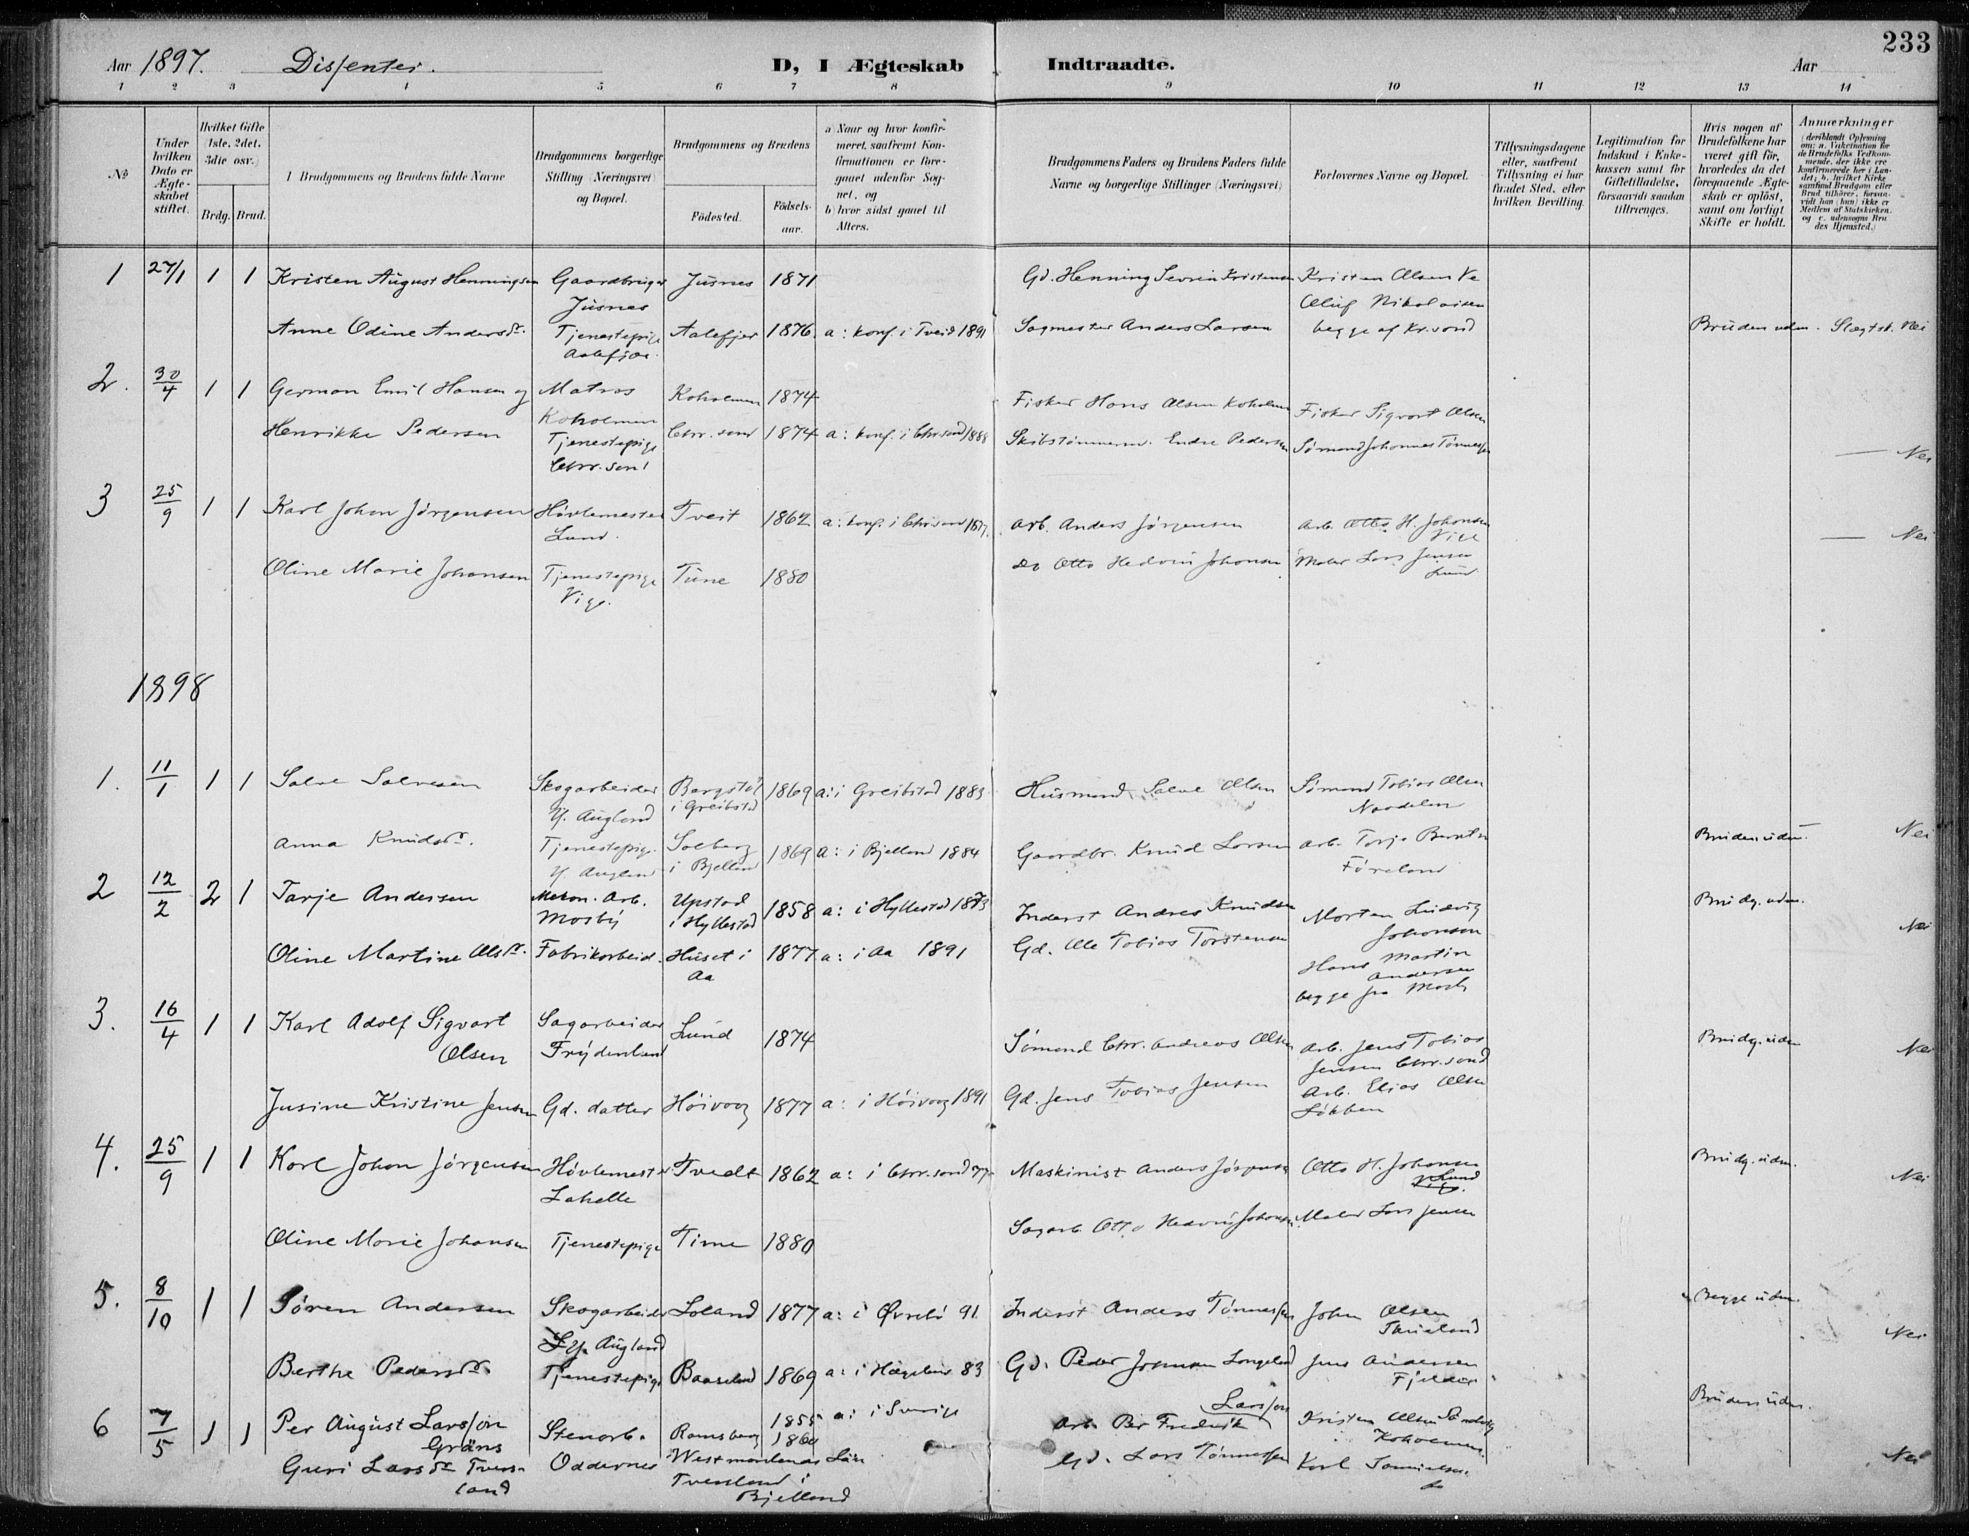 233
Aar 1897. Dissenter. D, I Ægteskab Indtraadte. Aar
1 2 3 4 5 6 7 8 9 10 11 12 13 14
No
Under hvilken Dato er Ægteskabet stiftet.
Hvilket Gifte (1ste, 2det, 3die osv.)
Brdg. Brud.
1 Brudgommens og Brudens fulde Navne
Brudgommens borgerlige Stilling (Næringsvei) og Bopæl.
Brudgommens og Brudens
Fødested.
Fødsels-aar.
a) Naar og hvor konfirmeret, saafremt Konfirmationen er foregaaet udenfor Sognet, og
b) hvor sidst gaaet til Alters.
Brudgommens Faders og Brudens Faders fulde Navne og borgerlige Stillinger (Næringsvei)
Forlovernes Navne og Bopæl.
Tillysningsdagene eller, saafremt Tillysning ei har fundet Sted, efter hvilken Bevilling.
Legitimation for Indskud i Enkekassen samt for Giftetilladelse, forsaavidt saadan tiltrænges.
Hvis nogen af Brudefolkene har været gift før, hvorledes da det foregaaende Ægteskab er opløst, samt om lovligt Skifte er holdt.
Anmærkninger (deriblandt Oplysning om: a. Vakcination for de Brudefolks Vedkommende, der ikke ere konfirmerede her i Landet; b. hvilket Kirkesamfund Brudgom eller Brud tilhører, forsaavidt han (hun) ikke er Medlem af Statskirken, og c. udensogns Brudes Hjemsted.)
1 27/1 1 1 Kristen August Henningsen Gaardbruger Jusnes 1871 Gd. Henning Severin Kristensen Kristen Olsen Ve
Jusnes Oluf Nikolaisen
Anne Odine Andersdr. Tjenestepige Aalefjær 1876. a: konf. i Tveid 1891 Sagmester Anders Larsen begge af Kr.sand Bruden uden. Slegtsk. Nei
Aalefjær.
2. 30/4 1 1 German Emil Hansen og Matros Koholmen 1874 Fisker Hans Olsen Koholmen Fisker Sigvart Olsen
Koholmen
Henrikke Pedersen Tjenestepige Chr.sand 1874 a: konf. i Chr.sand 1888 Skibstømmerm. Endre Pedersen Sømand Johannes Tønnesen — Nei
Chr.sand
3 25/9 1 1 Karl Johan Jørgensen Høvlemester Tveit 1862 a: konf. i Chr.sand 1877. Arb. Anders Jørgensen Arb. Otto H. Johansen — Nei
Lund. Vige
Oline Marie Johansen Tjenestepige Tune 1880 do Otto Hedvin Johansen Maler Lars Jensen
Vige. Lund
1898
1. 11/1 1 1 Salve Salvesen Skogarbeider Bergstøl 1869 a: i Greibstad 1883 Husmand Salve Olsen Sømand Tobias Olsen
Y. Augland i Greibstad
Anna Knudsdr. Tjenestepig. Solberg 1869 a: i Bjelland 1884 Gaardbr. Knud Larsen Arb. Torje Berntsen Bruden uden Nei
Y. Augland i Bjelland
2 12/2 2 1 Tarje Andersen Arb. Upstad 1858 a: i Hyllestad 1873 Inderst Andres Knudsen Morten Ludvig Brudg. uden.
Mosby i Hyllestad Johansen Nei
Oline Martine Olsdr. Fabrikarbeid. Huset i 1877 a: i Aa 1891 Gd. Ole Tobias Torstensen Hans Martin
Aa Andersen
begge fra Mosb
3. 16/4 1 1 Karl Adolf Sigvart Sagarbeider Lund 1874 Sømand Chr. Andreas Olsen Arb. Jens Tobias Brudg. uden Nei
Olsen Frydenlund Jensen Chr.sand
Jusine Kristine Jensen Gd. datter Høivaag 1877 a: i Høivaag 1891 Gd. Jens Tobias Jensen Arb. Elias Olsen
Løkken
4. 25/9 1 1 Karl Johan Jørgensen Høvlemester Tvedt 1862 a: i Chr.sand 77 Maskinist Anders Jørgensen Otto H. Johansen Brudg. uden. Nei
Lahelle Lund
Oline Marie Johansen Tjenestepige Time 1880 Sagarb. Otto Hedvin Johansen Maler Lars Jensen
5. 8/10 1 1 Søren Andersen Skogarbeider Loland 1877 a: i Øvrebø 91 Inderst Anders Tønnesen John Olsen Begge uden.
Y. Augland Nei
Berthe Pedersdr Tjenestepige 1869 a: i Hægeland 83 Gd. Peder Jens Andersen
6 7/5 1 1 Per August Larsson Stenarb. Ramsberg 1855 a: i Sverige Arb. Per Fredrik Larsson Kristen Olsen Bruden uden.
Gräns 1860 Koholmen
Guri Larsdr Tvers- Oddernes Westmanlands Län Gd. Lars Tønnesen Karl Nei
land Tversland i do
Bjelland